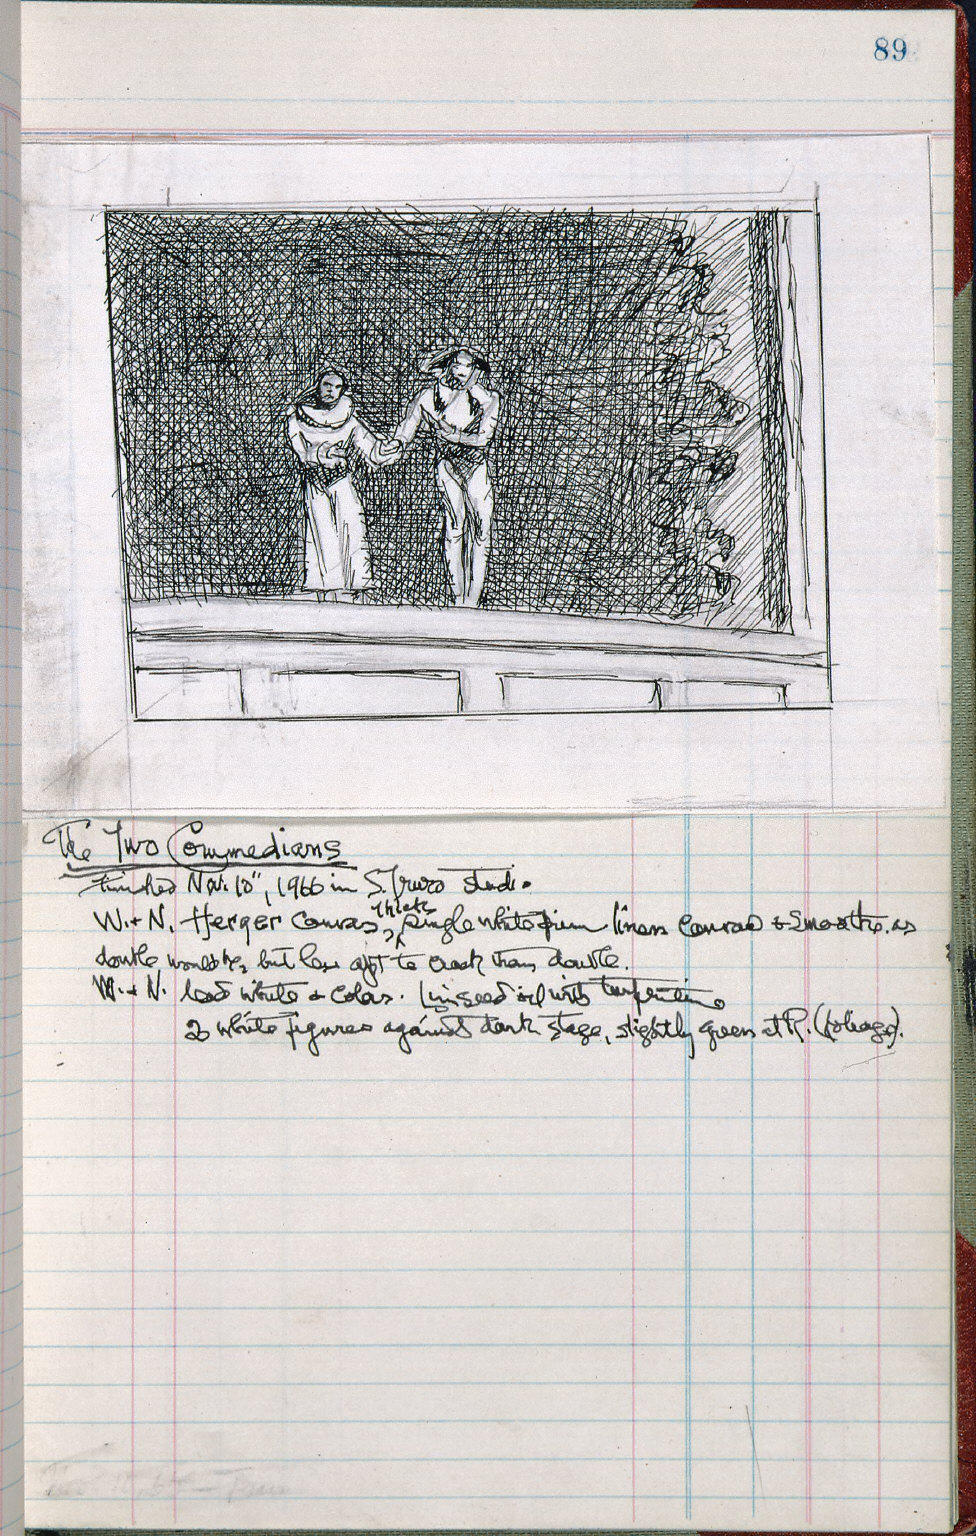 89
The Two Commedians
Finished Nov. 10", 1966 in S. Truro studio
W. + N. Herger Canvas, thick, single white prim linen canvas & smooth as
double would be, but less apt to crack than double.
W. + N. lead white & colors. Linseed oil with turpentine
2 white figures against dark stage, slightly green at R. (foliage).